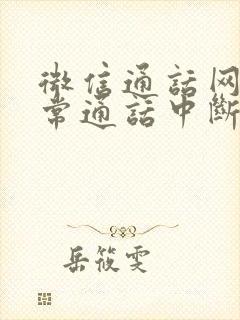 微信通話网
常通話中斷
岳筱雯